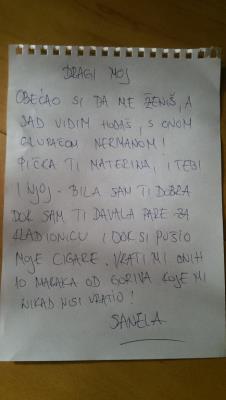 DRAGI MOJ
OBEĆAO SI DA ME ŽENIŠ, A
SAD VIDIM HODAŠ, S ONOM
MATERINA, I TEBI
I NJOJ - BILA SAM TI DOBRA
DOK SAM TI DAVALA PARE ZA
KLADIONICU I DOK SI PUŠIO
MOJE CIGARE. VRATI MI ONIH
10 MARAKA OD GORIVA KOJE MI
NIKAD NISI VRATIO!
SANELA